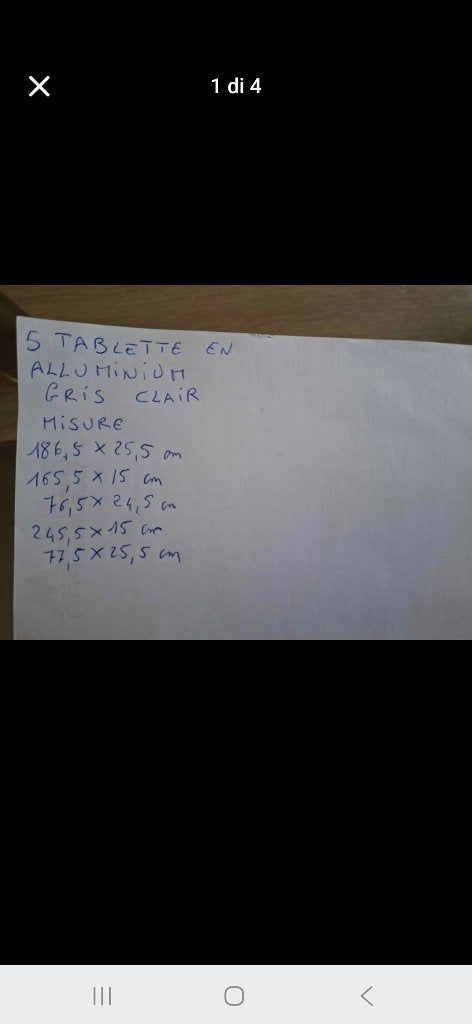 1 di 4
5 TABLETTE EN
ALLUMINIUM
GRIS CLAIR
MISURE
186,5 x 25,5 cm
165,5 x 15 cm
76,5 x 24,5 cm
245,5 x 15 cm
77,5 x 25,5 cm